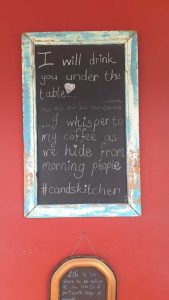 I will drink
you under the
table...
...I whisper to
my coffee as
we hide from
morning people
#candskitchen
Life is too